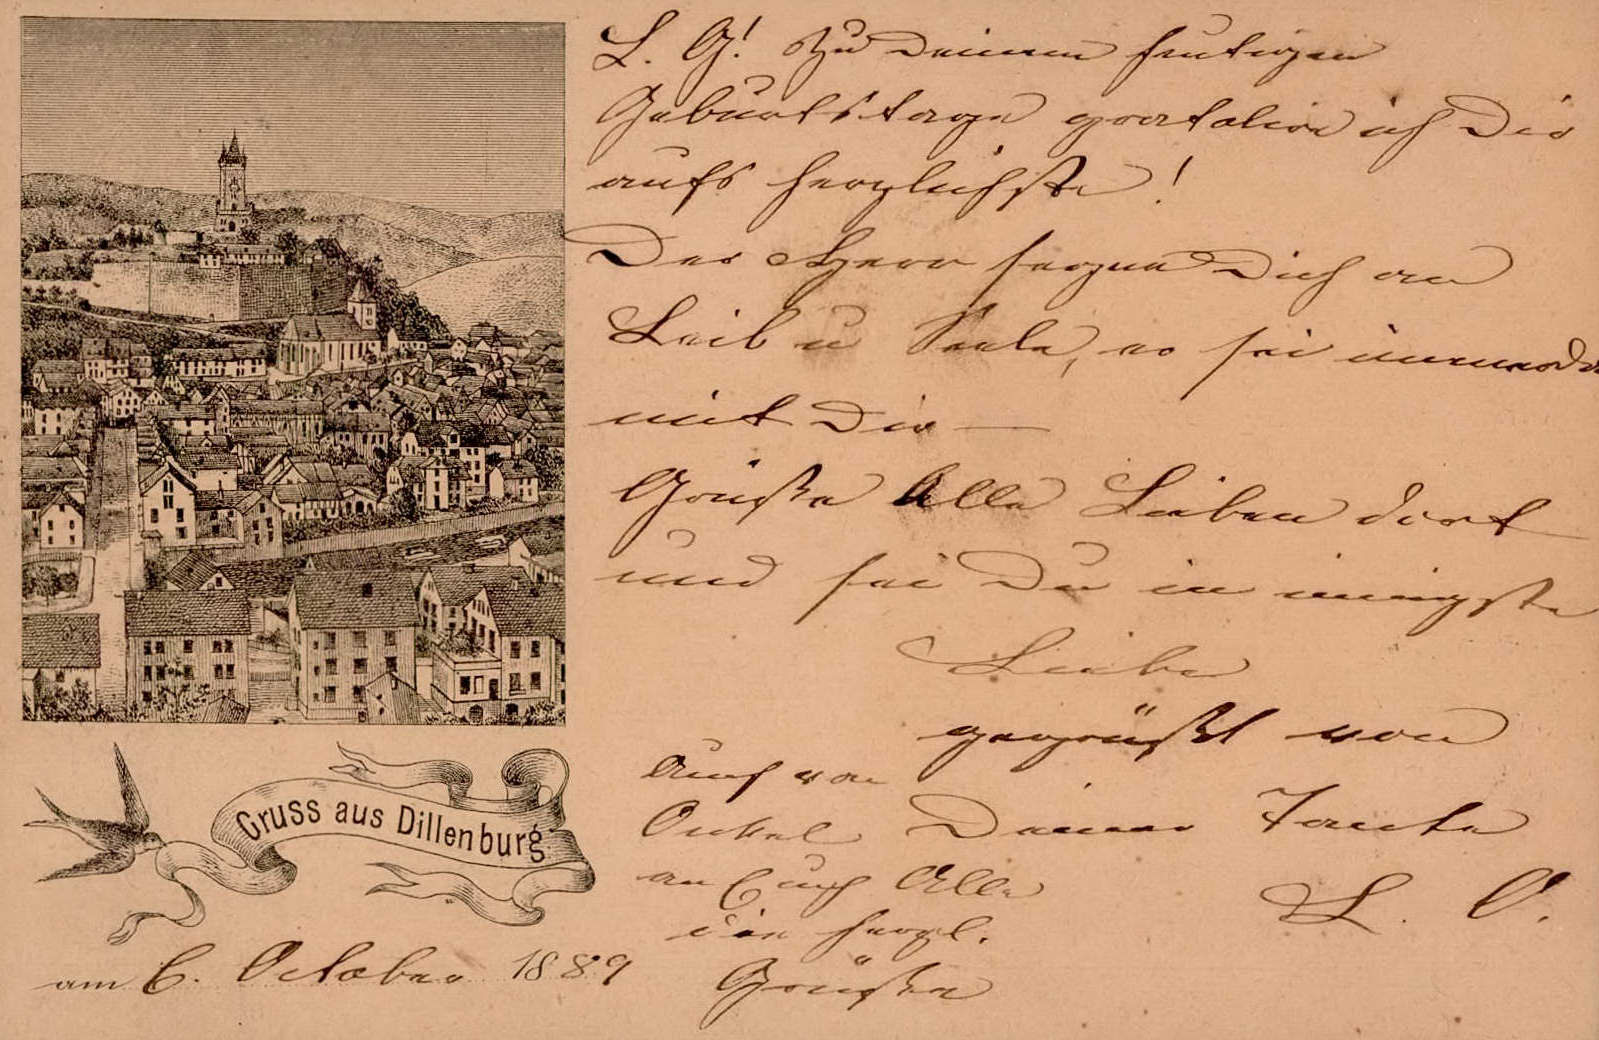 L. G! Zu Deinem heutigen
Geburtstage gratulire ich Dir
aufs herzlichste!
Der Herr segne Dich an
Leib u Seele, er sei immerdar
mit Dir —
Grüße Alle Lieben dort
und sei Du in innigster
Liebe
gegrüßt von
Deiner Tante
L. O.
Auch von
Onkel
an Euch Alle
die herzl.
Grüße
Gruss aus Dillenburg
am 6. October 1889